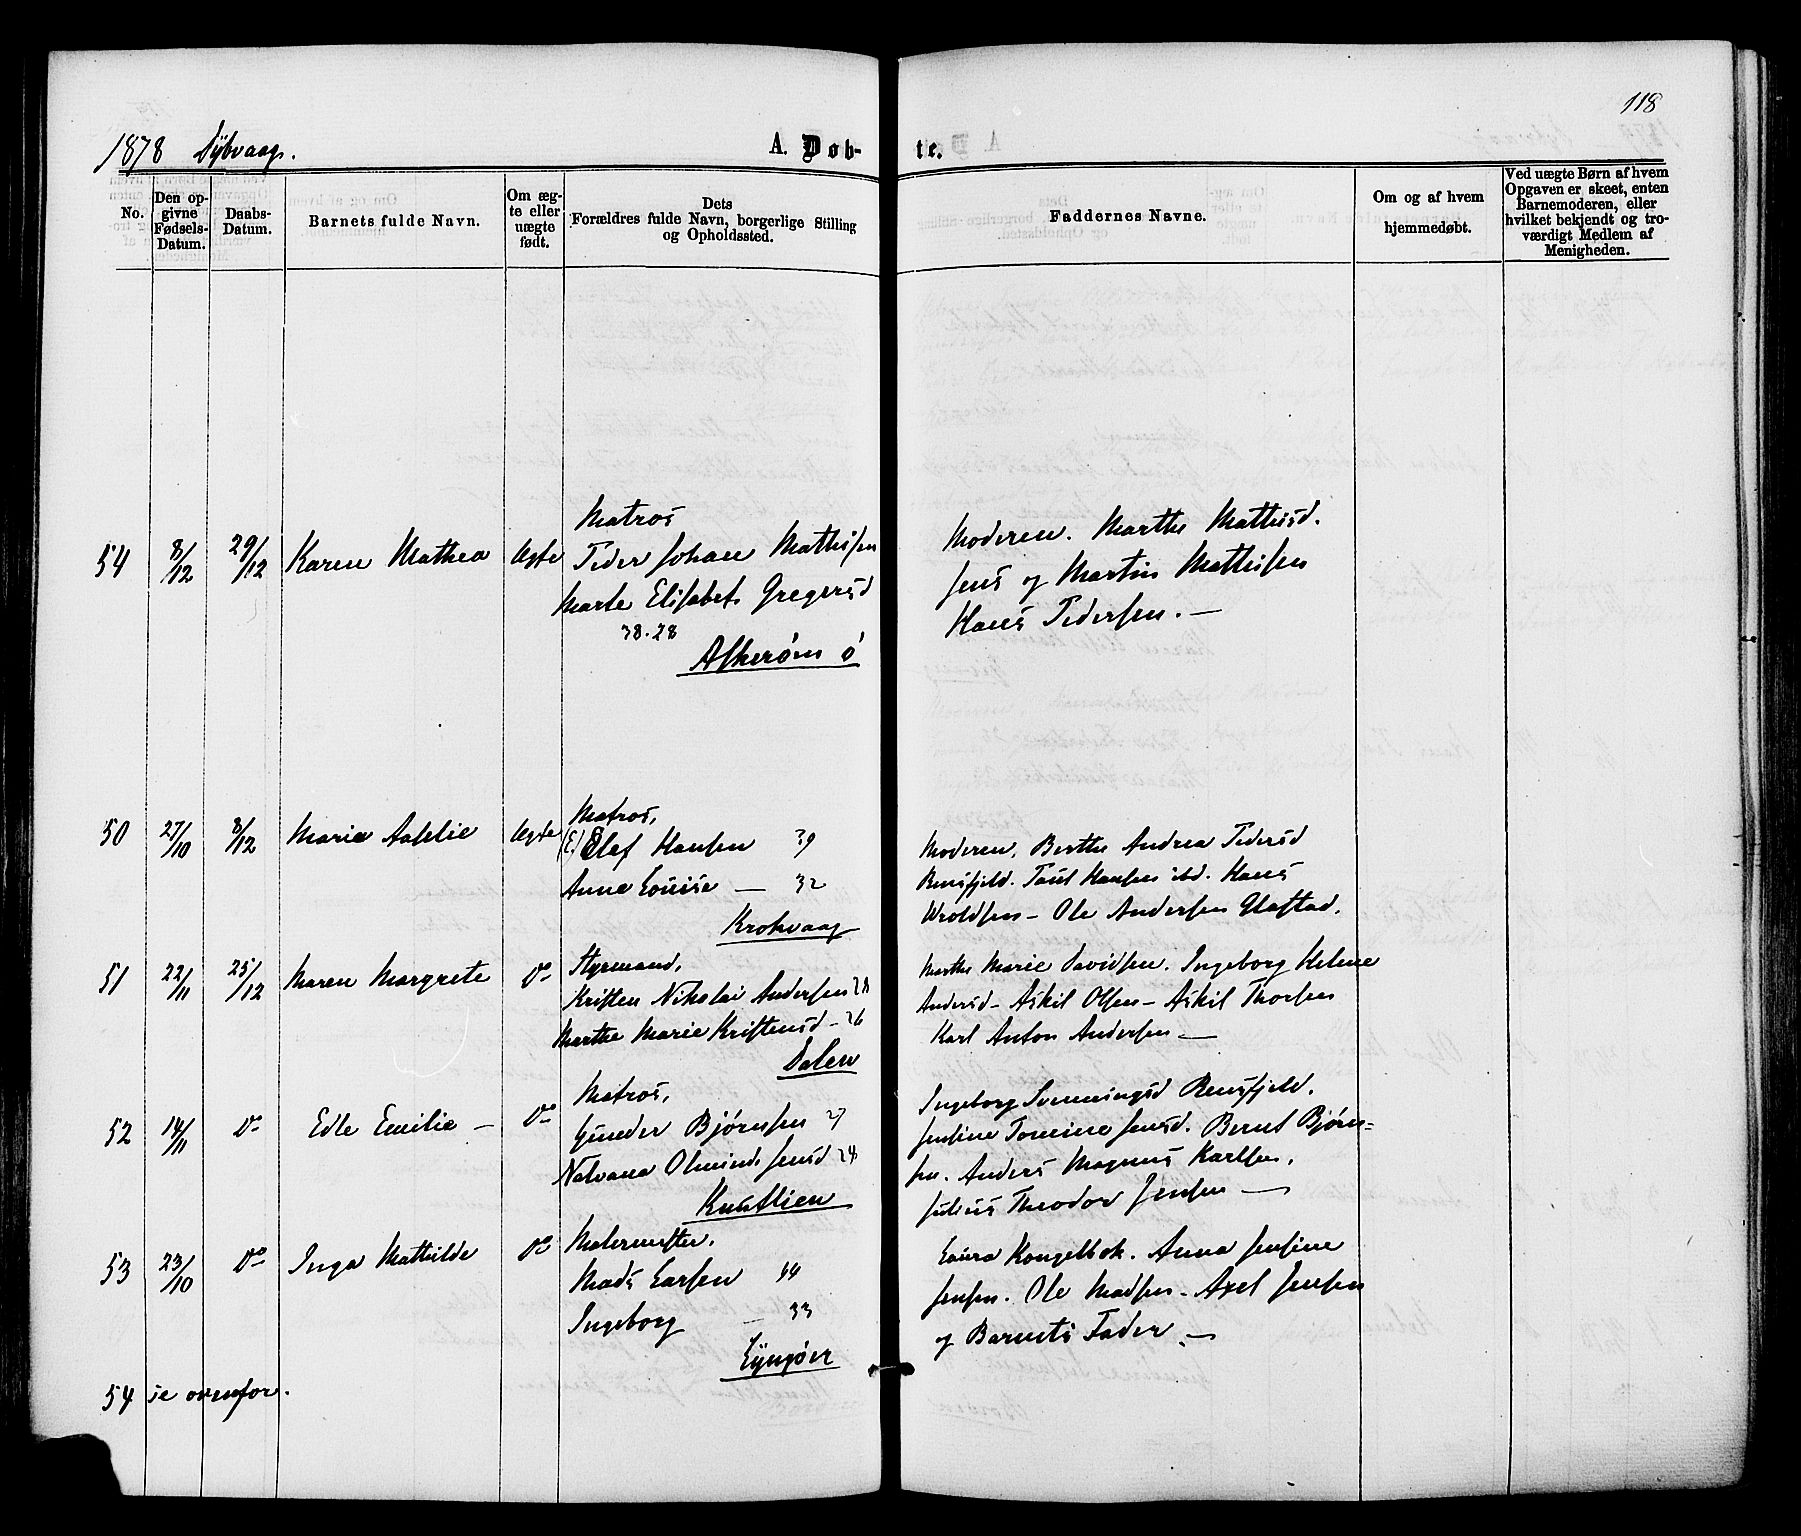 118
1878 Dybvaag.
A. Døb-
te.
No.
Den op-
givne
Fødsels-
Datum.
Daabs-
Datum.
Barnets fulde Navn.
Om æg-
te eller
uægte
født.
Dets
Forældres fulde Navn, borgerlige Stilling
og Opholdssted.
Faddernes Navne.
Om og af hvem
hjemmedøbt.
Ved uægte Børn af hvem
Opgaven er skeet, enten
Barnemoderen, eller
hvilket bekjendt og tro-
værdigt Medlem af
Menigheden.
54 8/12 29/12 Karen Mathea Ægte
Matros
Peder Johan Mathisen
Marte Elisabet Gregersd
38. 28
Askerøen ø
Moderen. Marthe Mathisd.
Jens og Martin Mathisen
Hans Pedersen. —
50 27/10 8/12 Marie Aahlie Ægte
Matros,
(E) Elef Hansen 39
Anne Louise — 32
Krokvaag
Moderen, Berthe Andrea Pedersd
Rensfjeld. Poul Hansen ibd. Hans
Wroldsen – Ole Andersen Glastad.
51 22/11 25/12 Maren Margrete Do
Styrmand,
Kristen Nikolai Andersen 28
Marthe Marie Kristensd – 26
Dalen
Marthe Marie Davidsen. Ingeborg Helene
Andersd – Askil Olsen – Askil Thorsen
Karl Anton Andersen —
52 14/11 Do Edle Emilie — Do
Matros,
Gunder Bjørnsen 27
Nalvana Olminde Jensd 24
Knutlien
Ingeborg Svenningsd Rensfjeld.
Jensine Tomine Jensd. Bernt Bjørn=
sen. Anders Magnus Karlsen,
Julius Theodor Jensen —
53 23/10 Do Inga Mathilde Do
Malermester,
Mads Larsen 44
Ingeborg — 33
Lyngøer
Laura Kongelbok. Anna Jensine
Jensen. Ole Madsen – Axel Jensen
og Barnets Fader —
54 se ovenfor.